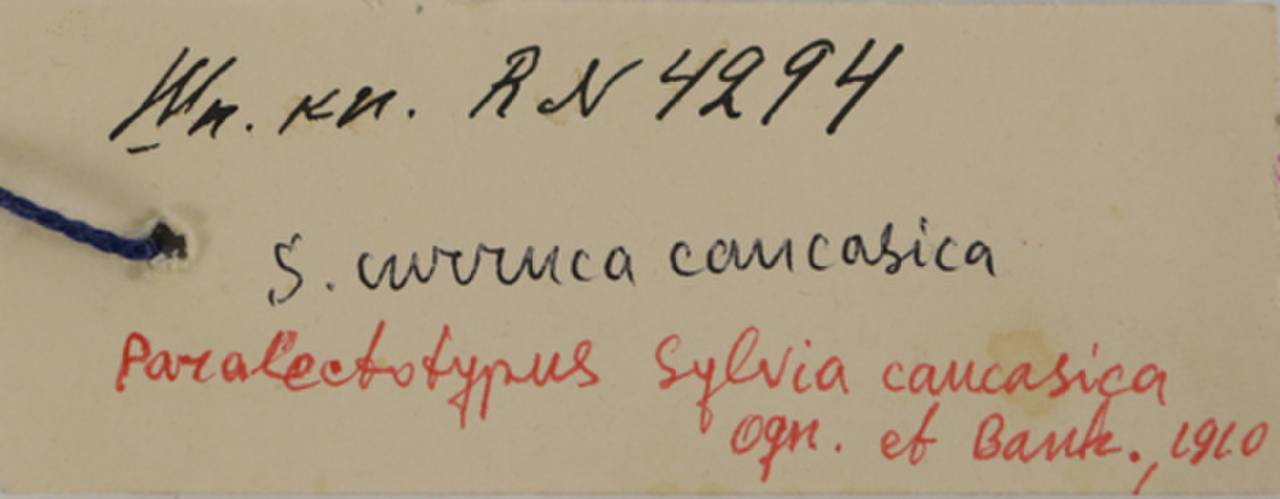 Шп. кп. R N 4294
S. curruca caucasica
Paralectotypus Sylvia caucasica
Ogn. et Bank., 1910